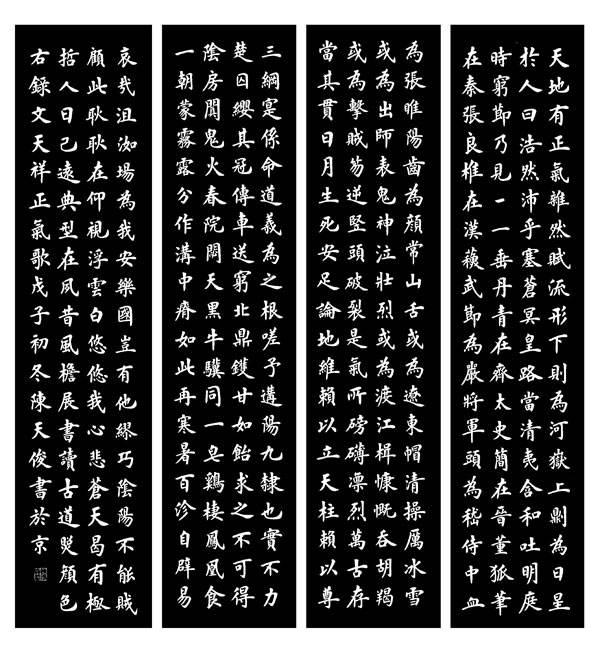 天地有正氣雜然賦流形下則為河嶽上則為日星
於人曰浩然沛乎塞蒼冥皇路當清夷含和吐明庭
時窮節乃見一一垂丹青在齊太史簡在晉董狐筆
在秦張良椎在漢蘇武節為嚴將軍頭為嵇侍中血
為張睢陽齒為顏常山舌或為遼東帽清操厲冰雪
或為出師表鬼神泣壯烈或為渡江楫慷慨吞胡羯
或為擊賊笏逆豎頭破裂是氣所磅礴凜烈萬古存
當其貫日月生死安足論地維賴以立天柱賴以尊
三綱寔係命道義為之根嗟予遘陽九隸也實不力
楚囚纓其冠傳車送窮北鼎鑊甘如飴求之不可得
陰房闃鬼火春院閟天黑牛驥同一皂鷄棲鳳凰食
一朝蒙霧露分作溝中瘠如此再寒暑百沴自辟易
哀哉沮洳場為我安樂國豈有他繆巧陰陽不能賊
顧此耿耿在仰視浮雲白悠悠我心悲蒼天曷有極
哲人日已遠典型在夙昔風檐展書讀古道照顏色
右錄文天祥正氣歌戊子初冬陳天俊書於京